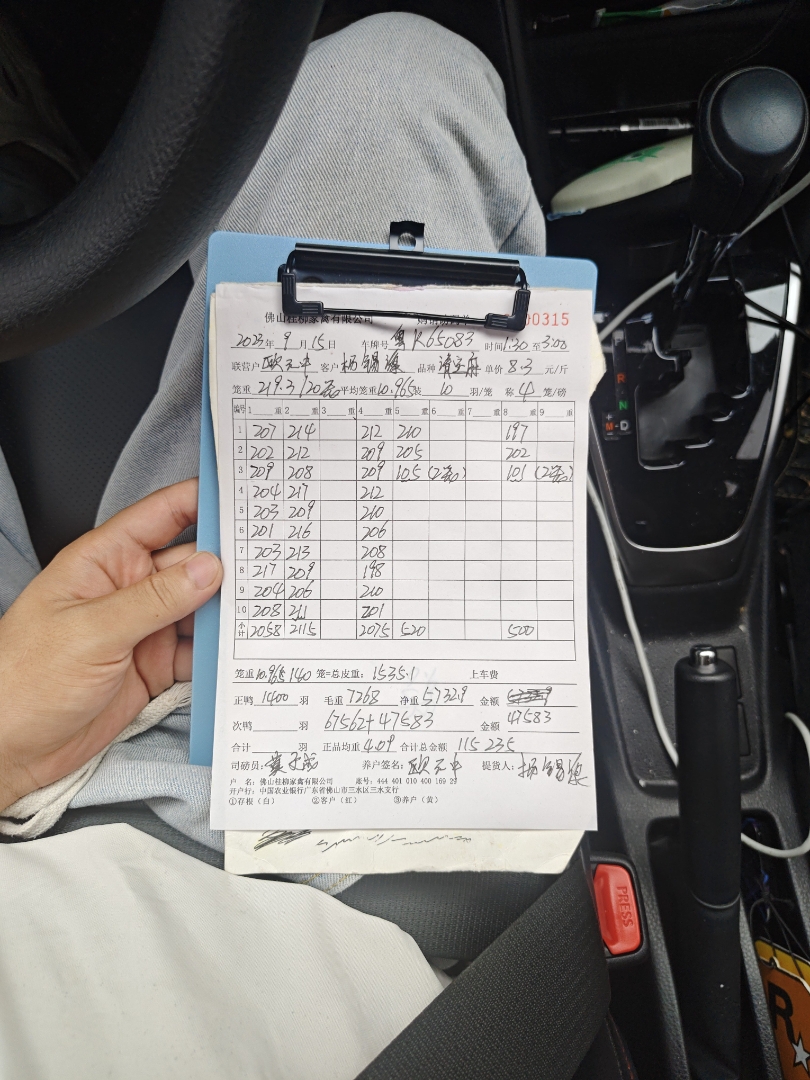 佛山桂柳家禽有限公司 00315
2023年9月15日 车牌号 粤K65083 时间1:30至3:00
联营户 欧 中 客户 杨锡 品种 单价 8.3 元/斤
笼重 219.3/20 平均笼重10.965 装 10 羽/笼 称 4 笼/磅
编号 1 重 2 重 3 重 4 重 5 重 6 重 7 重 8 重 9 重
1 207 214 212 210 197
2 202 212 209 205 202
3 209 208 209 105 (2笼) 101 (2笼)
4 204 217 212
5 203 209 210
6 201 216 206
7 203 213 208
8 217 209 198
9 204 206 210
10 208 211 201
小计 2058 2115 2075 520 500
笼重 10.965 140 笼=总皮重: 1535.1 上车费
正鸭 1400 羽 毛重 7268 净重 5732.9 金额
次鸭 羽 67562+47583 金额 47583
合计 羽 正品均重 4.09 合计总金额 115235
司磅员: 养户签名: 欧 中 提货人: 杨锡
户 名: 佛山桂柳家禽有限公司 账号: 444 401 010 400 169 29
开户行: 中国农业银行广东省佛山市三水区三水支行
①存根(白) ②客户(红) ③养户(黄)
R
N
+
M-D
PRESS
R